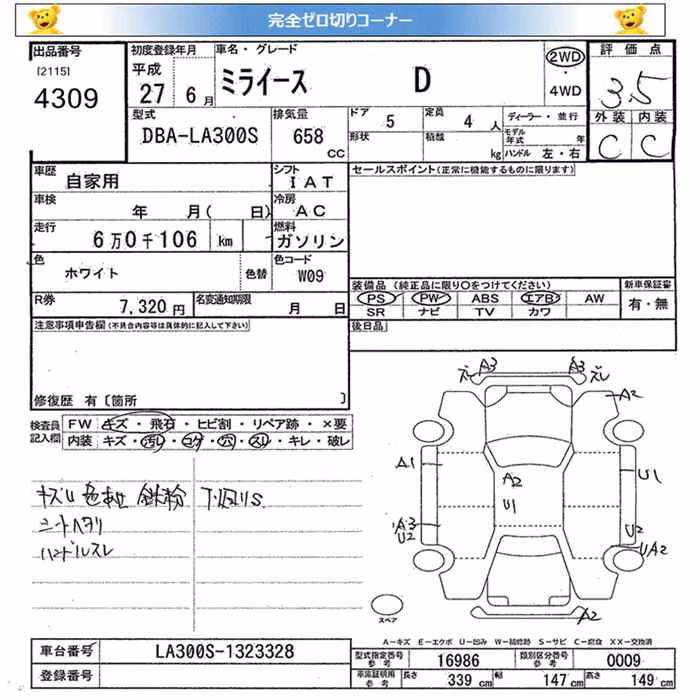 完全ゼロ切りコーナー
出品番号 初度登録年月 車名・グレード 2WD 評価点
[2115] 平成 ミライース D ・ 3.5
4309 27 6月 4WD
型式 排気量 ドア 5 定員 4人 ディーラー・並行 外装 内装
DBA-LA300S 658 CC 形状 積載 kg モデル年式 年 C C
ハンドル 左・右
車歴 自家用 シフト IAT セールスポイント(正常に機能するものに限ります)
車検 年 月( 日) 冷房 AC
走行 6万0千106 km 燃料 ガソリン
色 ホワイト 色替 色コード W09
装備品(純正品に限り○をつけてください) 新車保証書
R券 7,320円 名変通知期限 月 日 PS PW ABS エアB AW 有・無
SR ナビ TV カワ
注意事項申告欄(不具合内容等は具体的に記入して下さい) 後日品
修復歴 有〔箇所 〕
検査員記入欄 FW キズ・飛石・ヒビ割・リペア跡・×要
内装 キズ・汚れ・コゲ・穴・スレ・キレ・破レ
キズU 色あせ 鉄粉 下回りS
シートヘタリ
ハンドルスレ
ズレ A3 A3 ズレ
A2
A1 A2 U1
U1
A3 U2
U2 UA2
A2
スペア
A-キズ E-エクボ U-凹み W-補修跡 S-サビ C-腐食 XX-交換済
車台番号 LA300S-1323328 型式指定番号 参考 16986 類別区分番号 参考 0009
登録番号 車庫証明用 参考 長さ 339 cm 幅 147 cm 高さ 149 cm